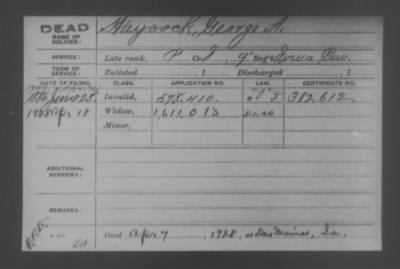 DEAD
NAME OF SOLDIER: Haycock, George A.
SERVICE: Late rank, P Co. I, 9" Reg't Iowa Cav.
TERM OF SERVICE: Enlisted , 1 Discharged , 1
DATE OF FILING. CLASS. APPLICATION NO. LAW. CERTIFICATE NO.
June 28, Invalid, 598.410. "G" I 382,612.
1928 Apr 18 Widow, 1,611,013
Minor,
ADDITIONAL SERVICES:
REMARKS:
Died Apr 7, 1928, at Des Moines, Ia.